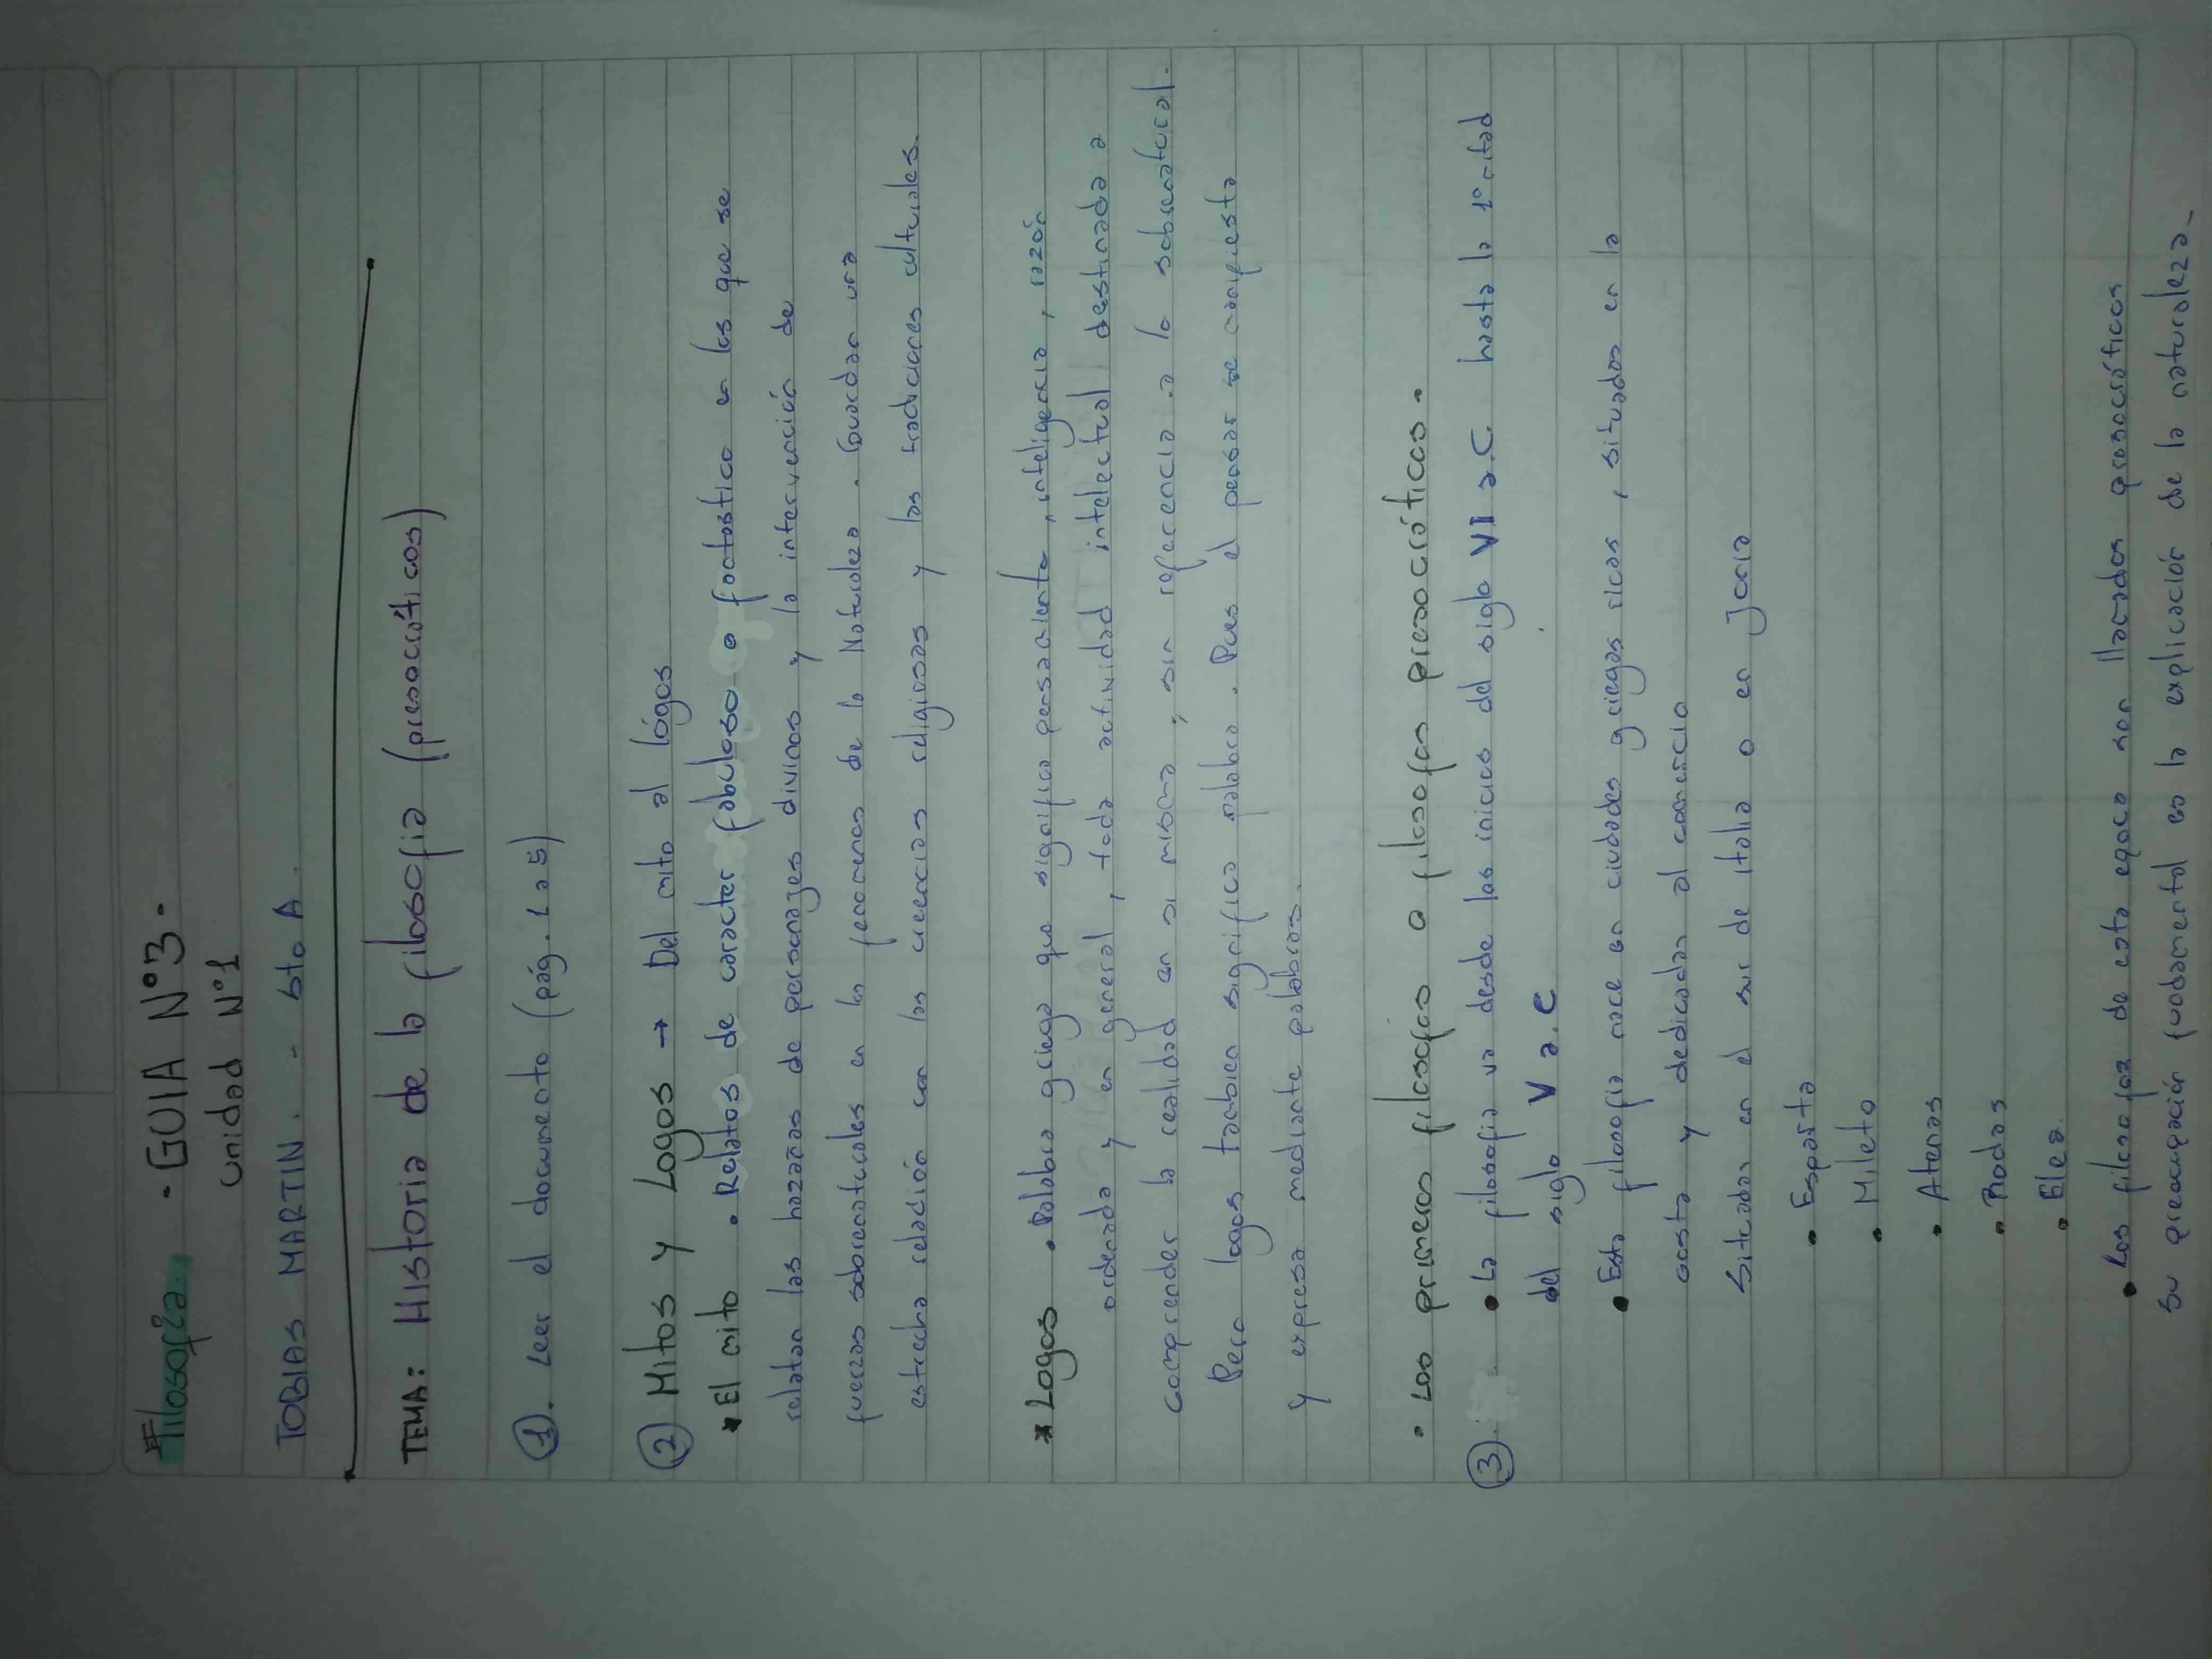 Filosofía.. • GUIA N°3-
Unidad N°1
TOBIAS MARTIN. - 6to A.
TEMA: Historia de la filosofia (presocráticos)
①. Leer el documento (pág. 1 a 5)
② Mitos y Logos → Del mito al lógos
* El mito • Relatos de caracter fabuloso o fantástico en los que se
relatan las hazañas de personajes divinos y la intervención de
fuerzas sobrenaturales en los fenomenos de la Naturaleza. Guardan una
estrecha relación con las creencias religiosas y las tradiciones culturales.
* Logos • Palabra griega que significa pensamiento, inteligencia, razón
ordenada y en general, toda actividad intelectual destinada a
comprender la realidad en si misma, sin referencia a lo sobrenatural.
Pero logos tambien significa palabra. Pues el pensar se manifiesta
y expresa mediante palabras.
• Los primeros filosofos o filosofos presocráticos.
③. • La filosofia va desde los inicios del siglo VI a.C. hasta la 1° mitad
del siglo V a.C
• Esta filosofia nace en ciudades griegas ricas, situadas en la
costa y dedicadas al comercio
Sitcadas en el sur de Italia o en Jonia
• Esparta
• Mileto
• Atenas
• Rodas
• Elea.
• Los filosofos de esta epoca son llamados presocráticos
su preocupación fundamental es la explicación de la naturaleza-